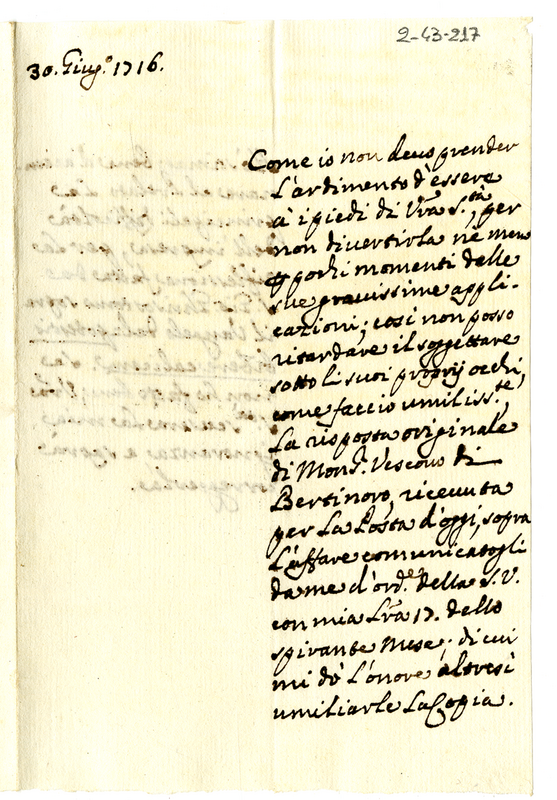 2-43-217
30. Giug.º 1716.
Come io non devo prender
l'ardimento d'essere
a' i piedi di Vrã S.tà, per
non divertirla nè meno
p pochi momenti dalle
sue gravissime appli-
cazioni; così non posso
ritardare il soggettare
sotto li suoi proprij occhi,
come faccio umiliss.te,
la risposta originale
di Mons.r Vescovo di
Bertinoro, ricevuta
per la Posta d'oggi, sopra
l'affare comunicatogli
da me d'ord.e della S. V.
con mia Lrã 17. dello
spirante Mese; di cui
mi dò l'onore altresì
umiliarle la Copia.